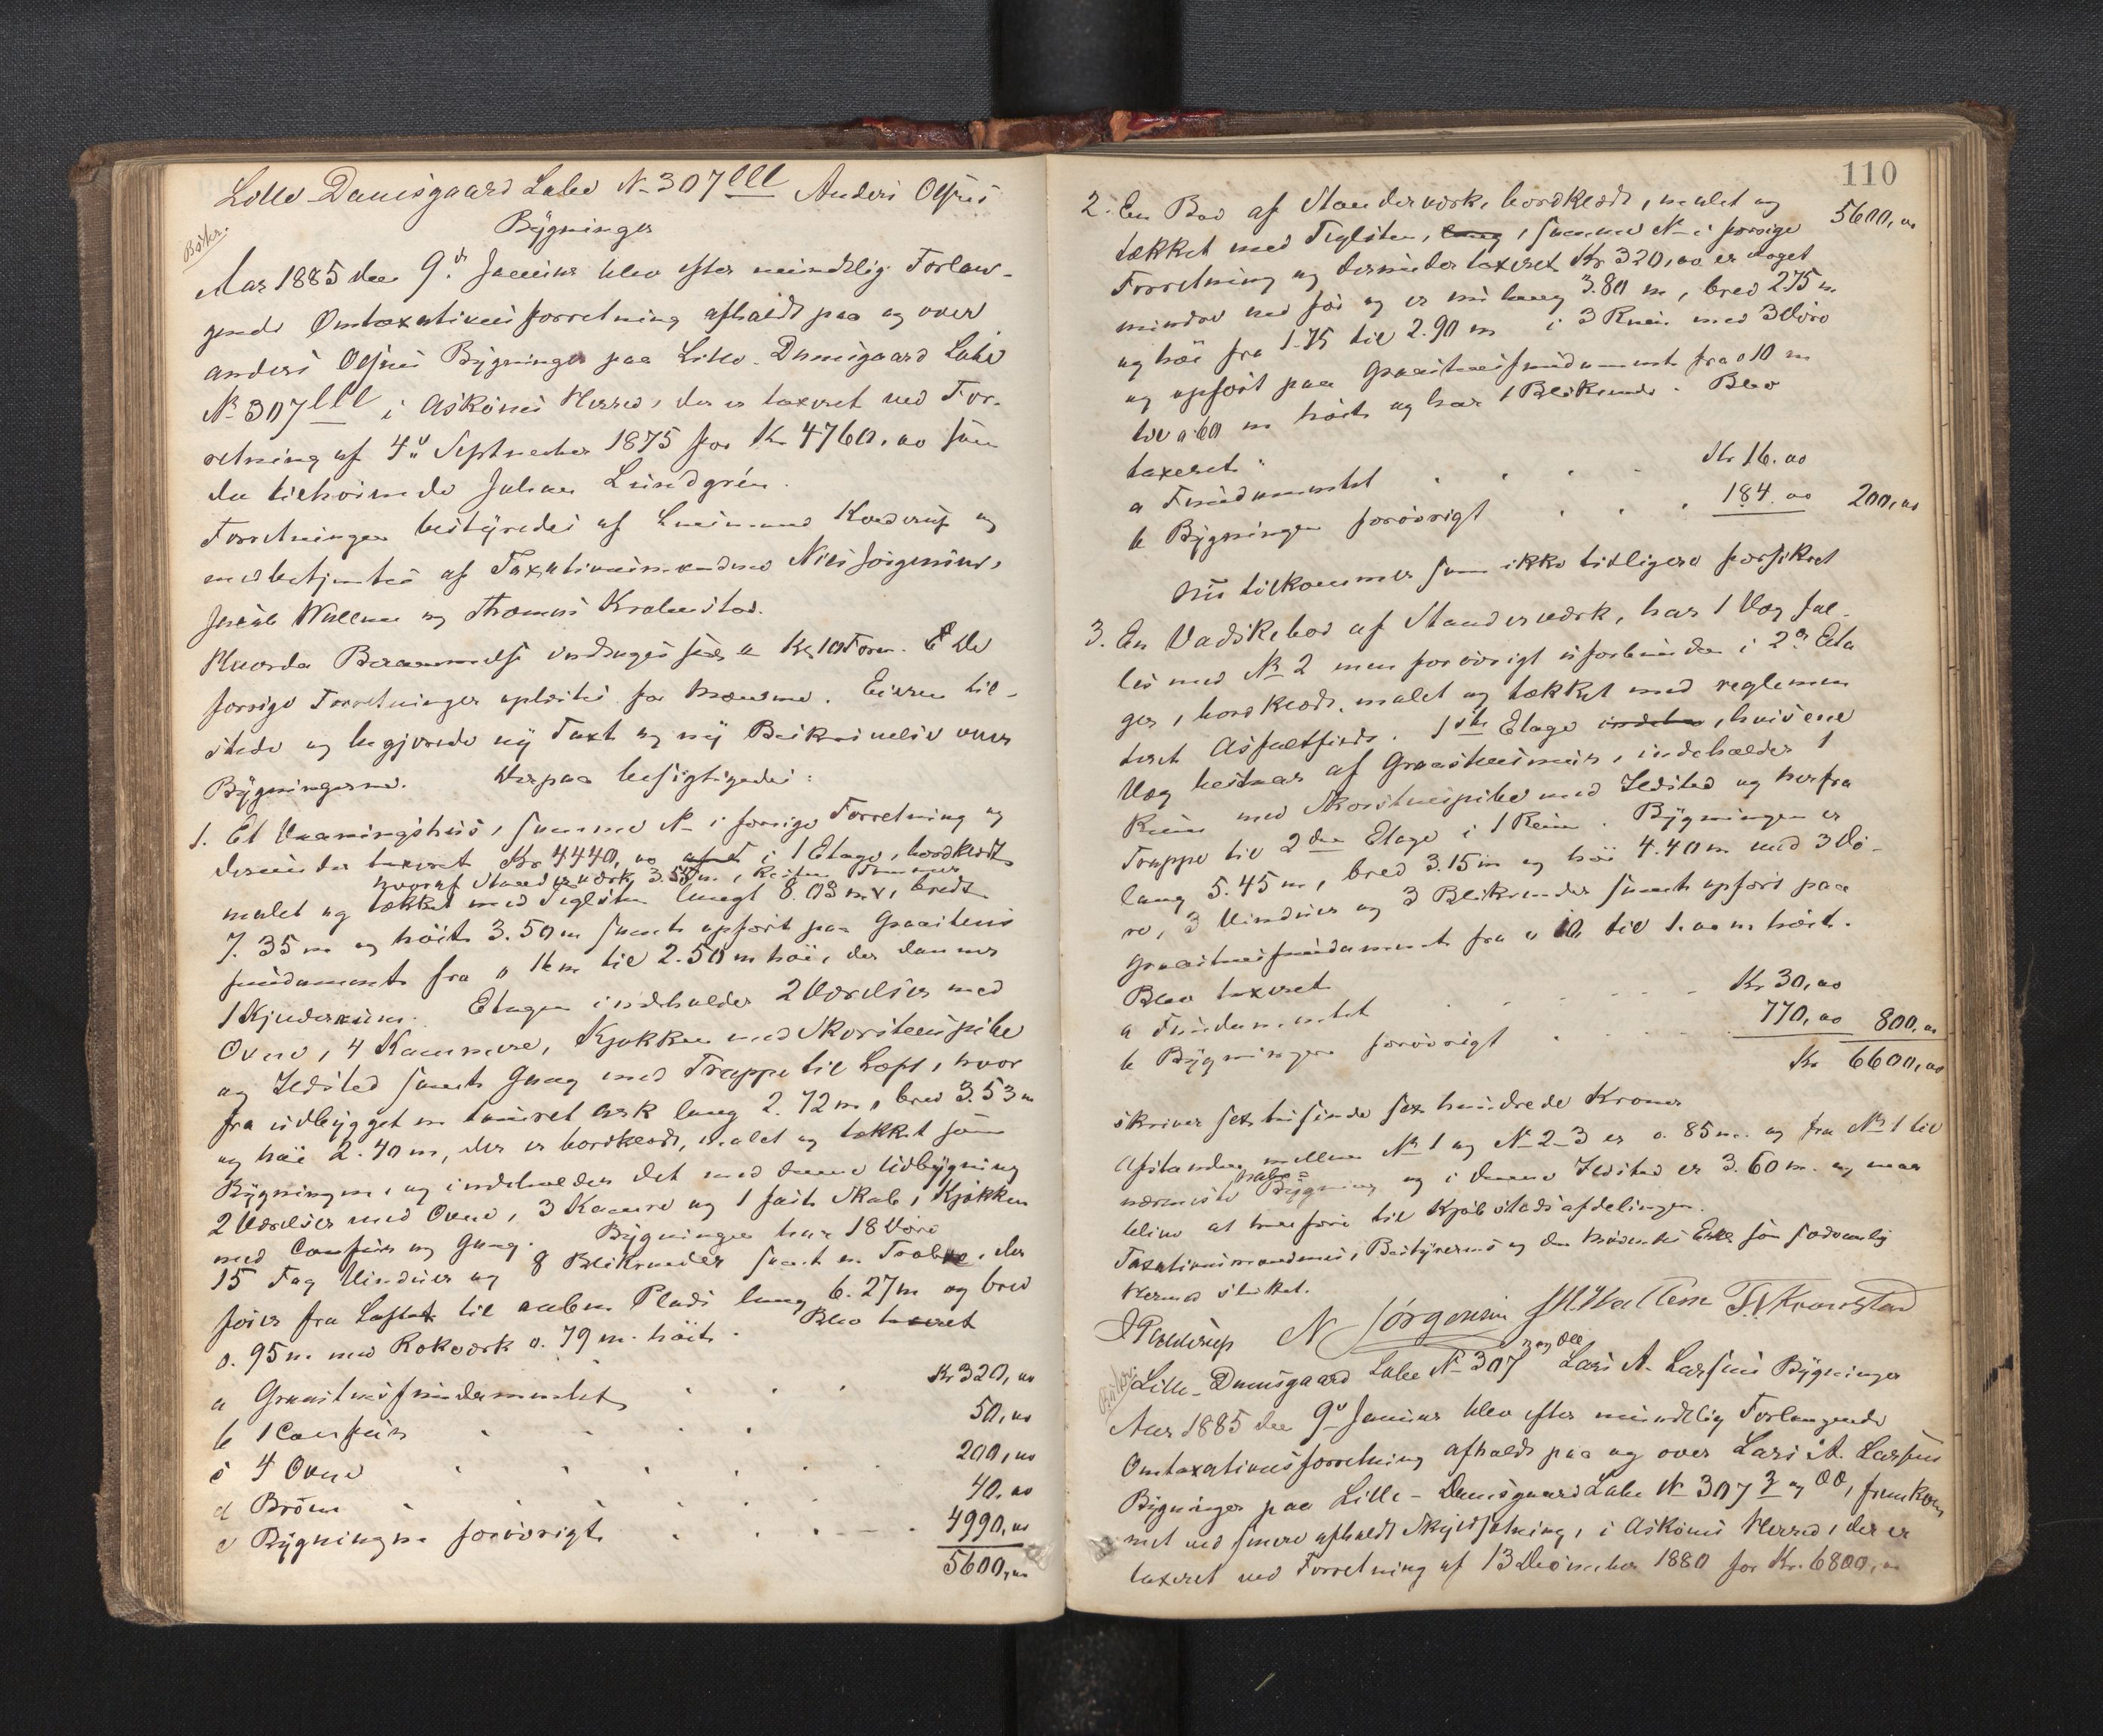 Lille Damsgaard Labe No 307 lll Anders Olsens
Bygninger
Beskr.
Aar 1885 den 9de Januar blev efter mundtlig Forlan-
gende Omtaxationsforretning afholdt paa og over
Anders Olsens Bygninger paa Lille-Damsgaard Labe
No 307 lll i Askøens Herred, der er taxeret ved For-
retning af 4de September 1875 for Kr 4760,00 som
da tilhørende Johan Lundgrén.
Forretningen bestyredes af Lensmand Kolderup og
medbetjentes af Taxationsmændene Niels Jørgensen,
Jacob Wallem og Thomas Krohnstad.
Hverda Berammelse
forrige Forretninger oplæstes for Mændene. Eieren til-
stede og begjærede ny Taxt og ny Beskrivelse over
Bygningerne. Derpaa besigtigedes:
1. Et Vaaningshus, samme No i forrige Forretning og
derunder taxeret Kr 4440,00 i 1 Etage, bordklædt
hvoraf Standerværk 3.55 m, Resten Tømmer
malet og tækket med Teglsten langt 8.03 m, bredt
7.35 m og høit 3.50 m samt opført paa Graastens
fundament fra 0 16 m til 2.50 m høi, der danner
1 Kjelderrum. Etagen indeholder 2 Værelser med
Ovne, 4 Kammere, Kjøkken med Skorstenspibe
og Ildsted samt Gang med Trappe til Loft, hvor
fra udbygget en tømret Ark lang 2.72 m, bred 3.53 m
og høi 2.40 m, der er bordklædt, malet og tækket som
Bygningen, og indeholder det med denne Udbygning
2 Værelser med Ovne, 3 Kamre og 1 fast Skab, Kjøkken
med Comfur og Gang. Bygningen har 18 Døre
15 Fag Vinduer og 8 Blikrender samt en Trappe, der
fører fra Loftet til aaben Plads lang 6.27 m og bred
0.95 m med Rækværk 0.79 m høit. Blev taxeret
a Graastensfundamentet Kr 320,00
b 1 Comfur 50,00
c 4 Ovne 200,00
d Brønn 40,00
e Bygningen forøvrigt 4990,00
5600,00
110
2. En Bod af Standerværk, bordklædt, malet og 5600,00
tækket med Teglsten, samme No i forrige
Forretning og derunder taxeret Kr 320,00 er noget
mindre end før og er nu lang 3.80 m, bred 2.75 m
og høi fra 1.75 til 2.90 m i 3 Rum med 3 Døre
og opført paa Graastensfundament fra 0 10 m
til 0 60 m høit og har 1 Blikrende. Blev
taxeret:
a Fundamentet Kr 16.00
b Bygningen forøvrigt 184.00 200,00
Nu tilkommer som ikke tidligere forsikret
3. En Vadskebod af Standerværk, har 1 Væg fæl-
les med No 2 men forøvrigt uforbunden i 2de Eta
ger, bordklædt, malet og tækket med reglemen
teret Asfaltfilt. 1ste Etage, hvis ene
Væg bestaar af Graastensmur, indeholder 1
Rum med Skorstenspibe med Ildsted og herfra
Trappe til 2den Etage i 1 Rum. Bygningen er
lang 5.45 m, bred 3.15 m og høi 4.40 m med 3 Dø-
re, 3 Vinduer og 3 Blikrender samt opført paa
Graastensfundament fra 0 10 til 1.00 m høit.
Blev taxeret
a Fundamentet Kr 30,00
b Bygningen forøvrigt 770,00 800,00
Kr 6600,00
skriver sex tusinde sex hundrede Kroner
Afstanden mellem No 1 og No 2-3 er 0.85 m. og fra No 1 til
nærmeste Nabo= Bygning og i denne Ildsted er 3.60 m. og maa
blive at henføre til Kjøbstadsafdelingen.
Taxationsmændenes, Bestyrerens og den mødendes som sædvanlig
Hermed sluttet.
J Kolderup N Jørgensen J M Wallem T. Kronstad
Beskr.
Lille-Damsgaard Labe No 307 3 og ØØ Lars A. Larsens Bygninger
Aar 1885 den 9de Januar blev efter mundtlig Forlangende
Omtaxationsforretning afholdt paa og over Lars A. Larsens
Bygninger paa Lille-Damsgaard Labe No 307 3 og ØØ, fremkom
met ved senere afholdt Skyldsætning, i Askøens Herred, der er
taxeret ved Forretning af 13 December 1880 for Kr. 6800,00